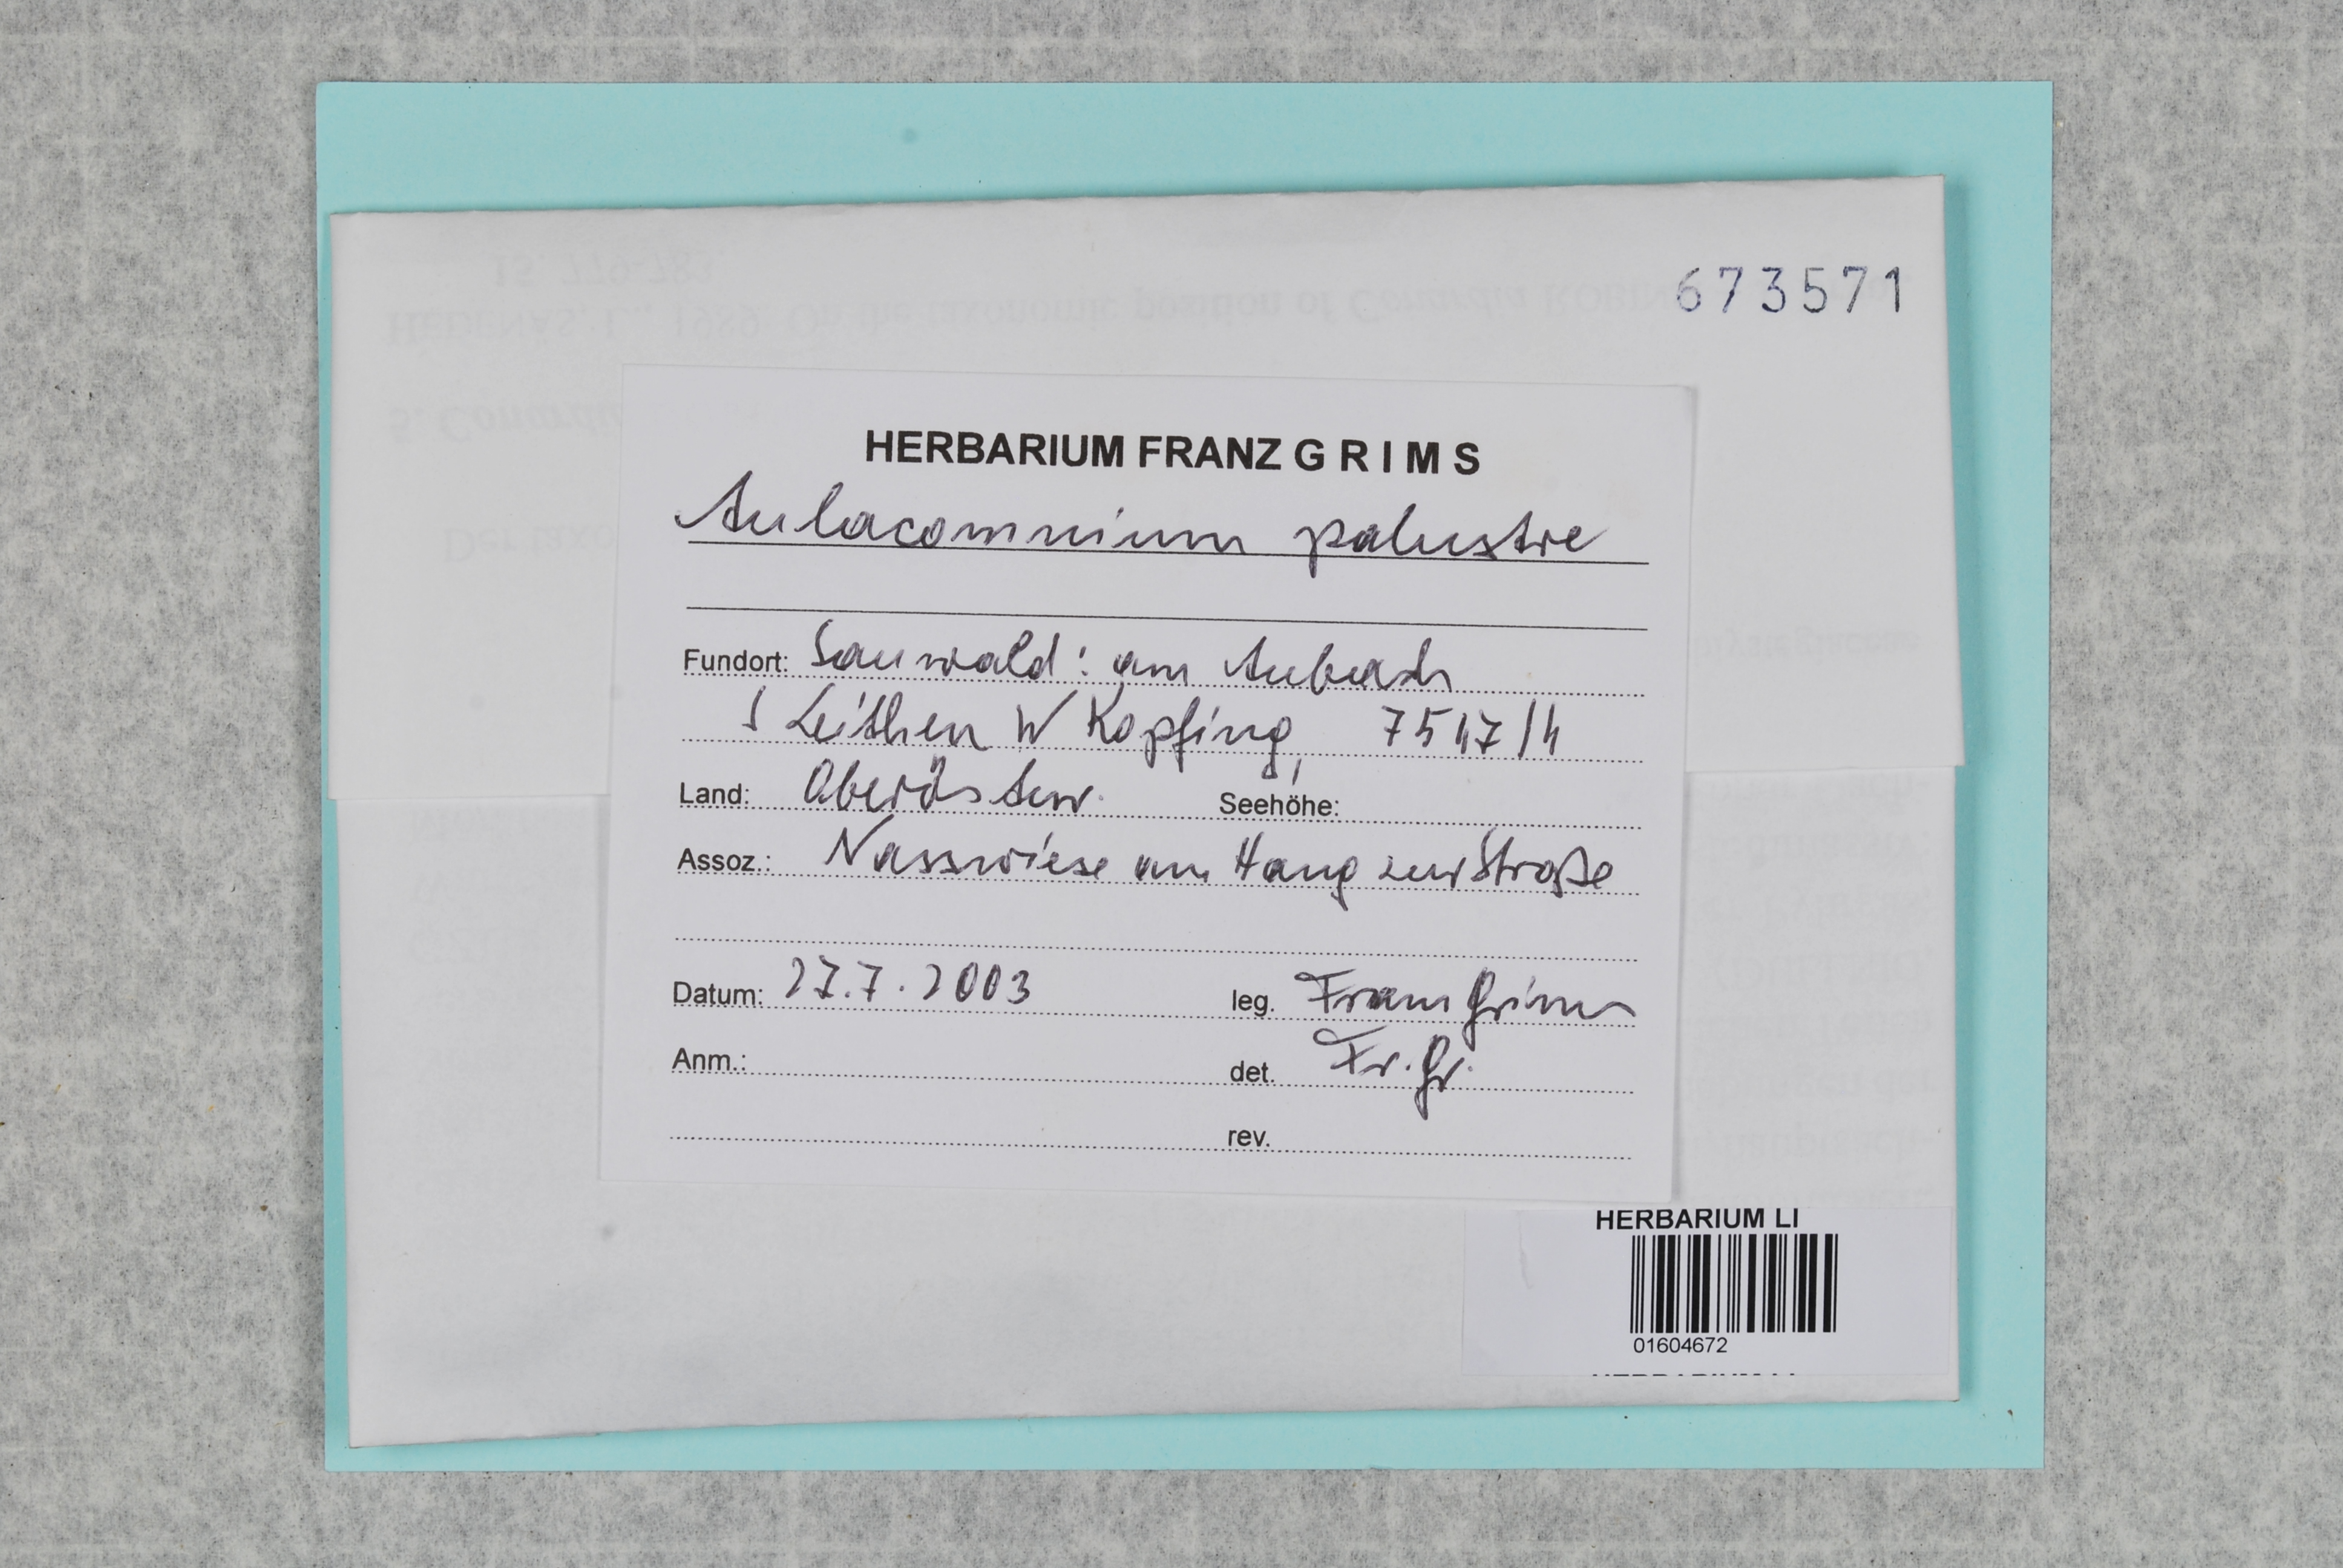 673571
HERBARIUM FRANZ G R I M S
Aulacomnium palustre
Fundort: Sauwald: am Aubach
S Leithen W Kopfing, 7547/4
Land: Oberösterr. Seehöhe:
Assoz.: Nasswiese am Hang zur Straße
Datum: 27.7.2003 leg. Franz Grims
Anm.: det. Fr. Gr.
rev.
HERBARIUM LI
01604672